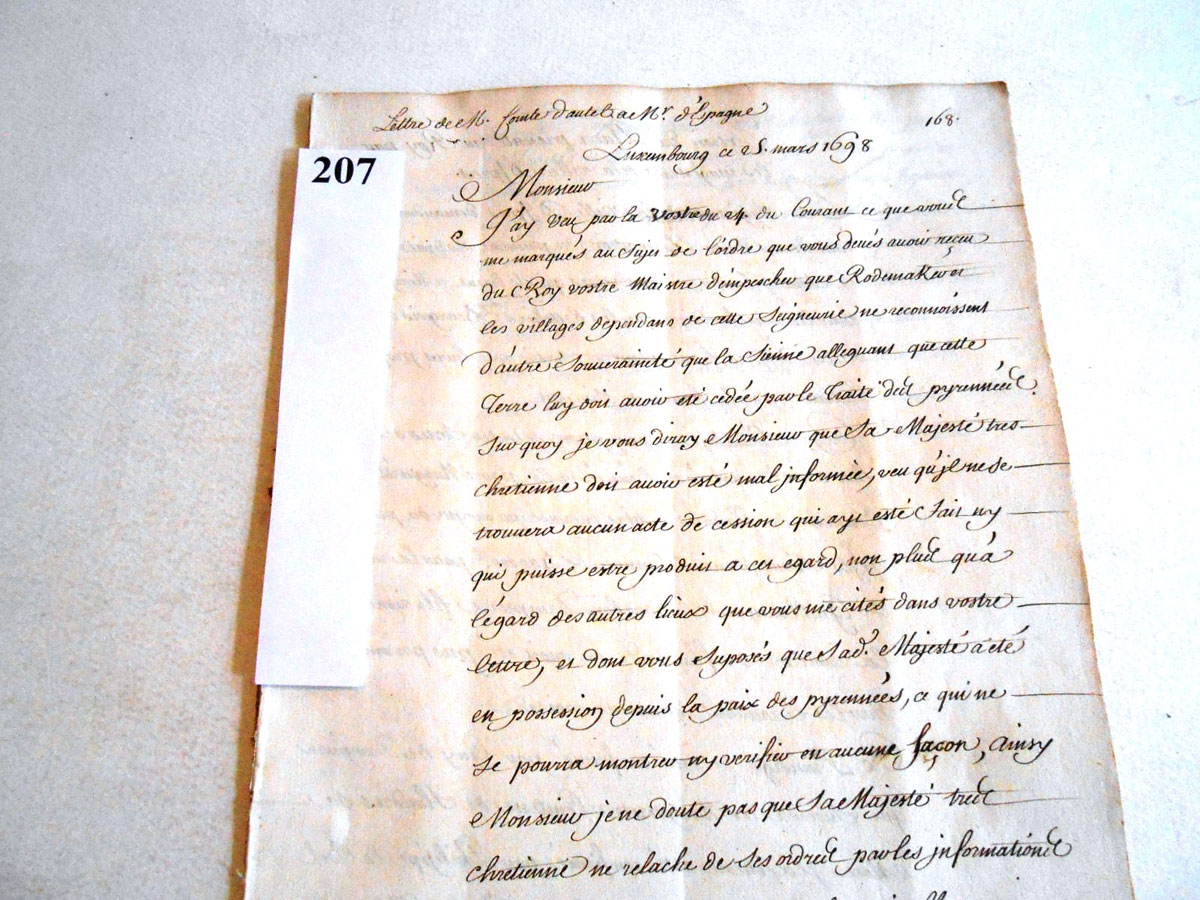 Lettre de M. Comte d'autel a Mr. d'Espagne
168.
207
Luxembourg ce 25. mars 1698
Monsieur
J'ay veu par la vostre du 24. du Courant ce que vous
me marqués au Sujet de l'ordre que vous devés avoir reçeu
du Roy vostre Maistre d'empescher que Rodemaker et
les villages dependans de cette Seigneurie ne reconnoissent
d'autre Souveraineté que la Sienne alleguant que cette
Terre luy doit avoir eté cedée par le Traité des pyrennées.
Sur quoy je vous diray Monsieur que Sa Majesté tres
chretienne doit avoir esté mal informée, veu qu'il ne se
trouvera aucun acte de cession qui ayt esté fait ny
qui puisse estre produit a cet egard, non plus qu'a
l'égard des autres lieux que vous me cités dans vostre
lettre, et dont vous Suposés que Sad. Majesté a été
en possession depuis la paix des pyrennées, ce qui ne
se pourra montrer ny verifier en aucune façon, ainsy
Monsieur je ne doute pas que Sa Majesté tres
chretienne ne relache de Ses ordres par les informations